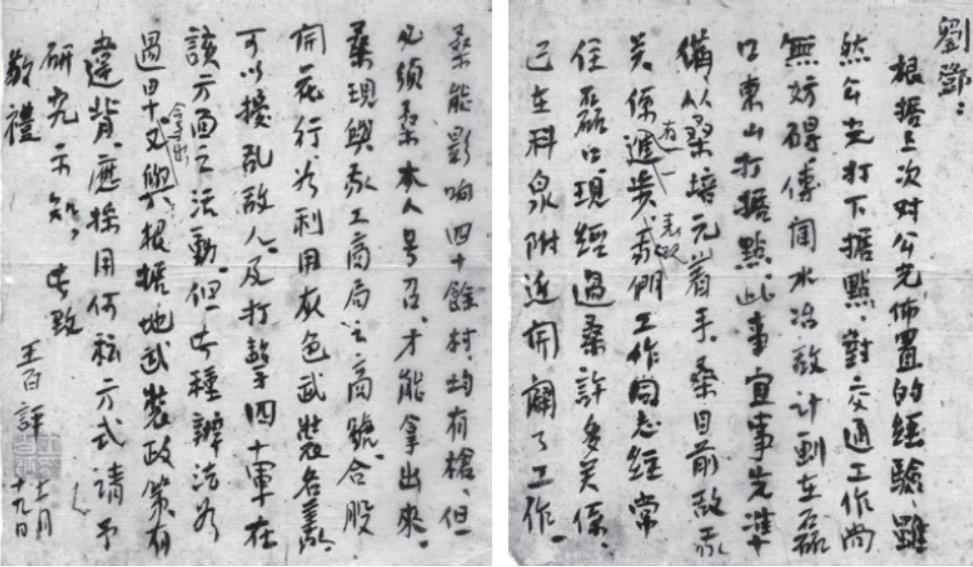 劉鄧：
根据上次对公光佈置的經驗，雖
然公光打下据點，對交通工作尚
無妨碍，傳聞水冶敌计劃在磊
口東山打据點，此事宜事先准
備，从桑培元着手，桑目前敌我
关係有進一步表現，我們工作同志經常
住磊口，現經過桑許多关係，
已在科泉附近開闢了工作。
桑能影响四十餘村，均有槍，但
必須桑本人号召，才能拿出來。
桑現與我工商局之商號，合股
開花行，为利用灰色武装名義，
可以擾乱敌人。及打擊四十軍在
該方面之活動。但此种辦法为
過甲又會形與根据地武裝政策有
違背，應採用何种方式請予
研究示知，此致
敬禮
王百評
十一月
十九日